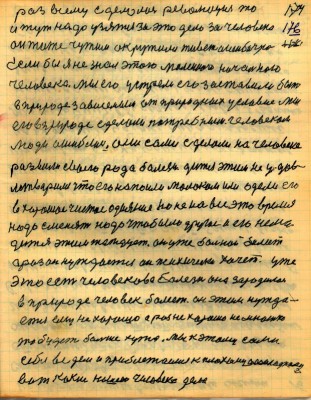 раз всему сделалась революция то 174
и тут надо взятся за это дело за человека 176
он тоже чутко окрутили
если бы я не знал этого молокого начального
человека. Мы его устрели его заставили быть
в природе зависимым от природных условие мы
его в природе сделали потребным человеком
люди ошиблись, они сами сделали на человека
развили своего рода болезь дитя этим не удов-
летворили что его напоили молоком или одели его
в хорошое чистое одияние но на все это время
надо сменять надо чтобы было другое а его нема
дитя этим страждует. он уже больной болеит
а раз он нуждается он жизненно хочет уже
это есть человекова болезнь она зародилася
в природе человек болеет. он этим нужда-
ется ему не хорошо а раз не хорошо немножко
то будет больше хуже. мы к этому сами
себя ведем и приближаемся к плохому
вот какие нашего человека дела